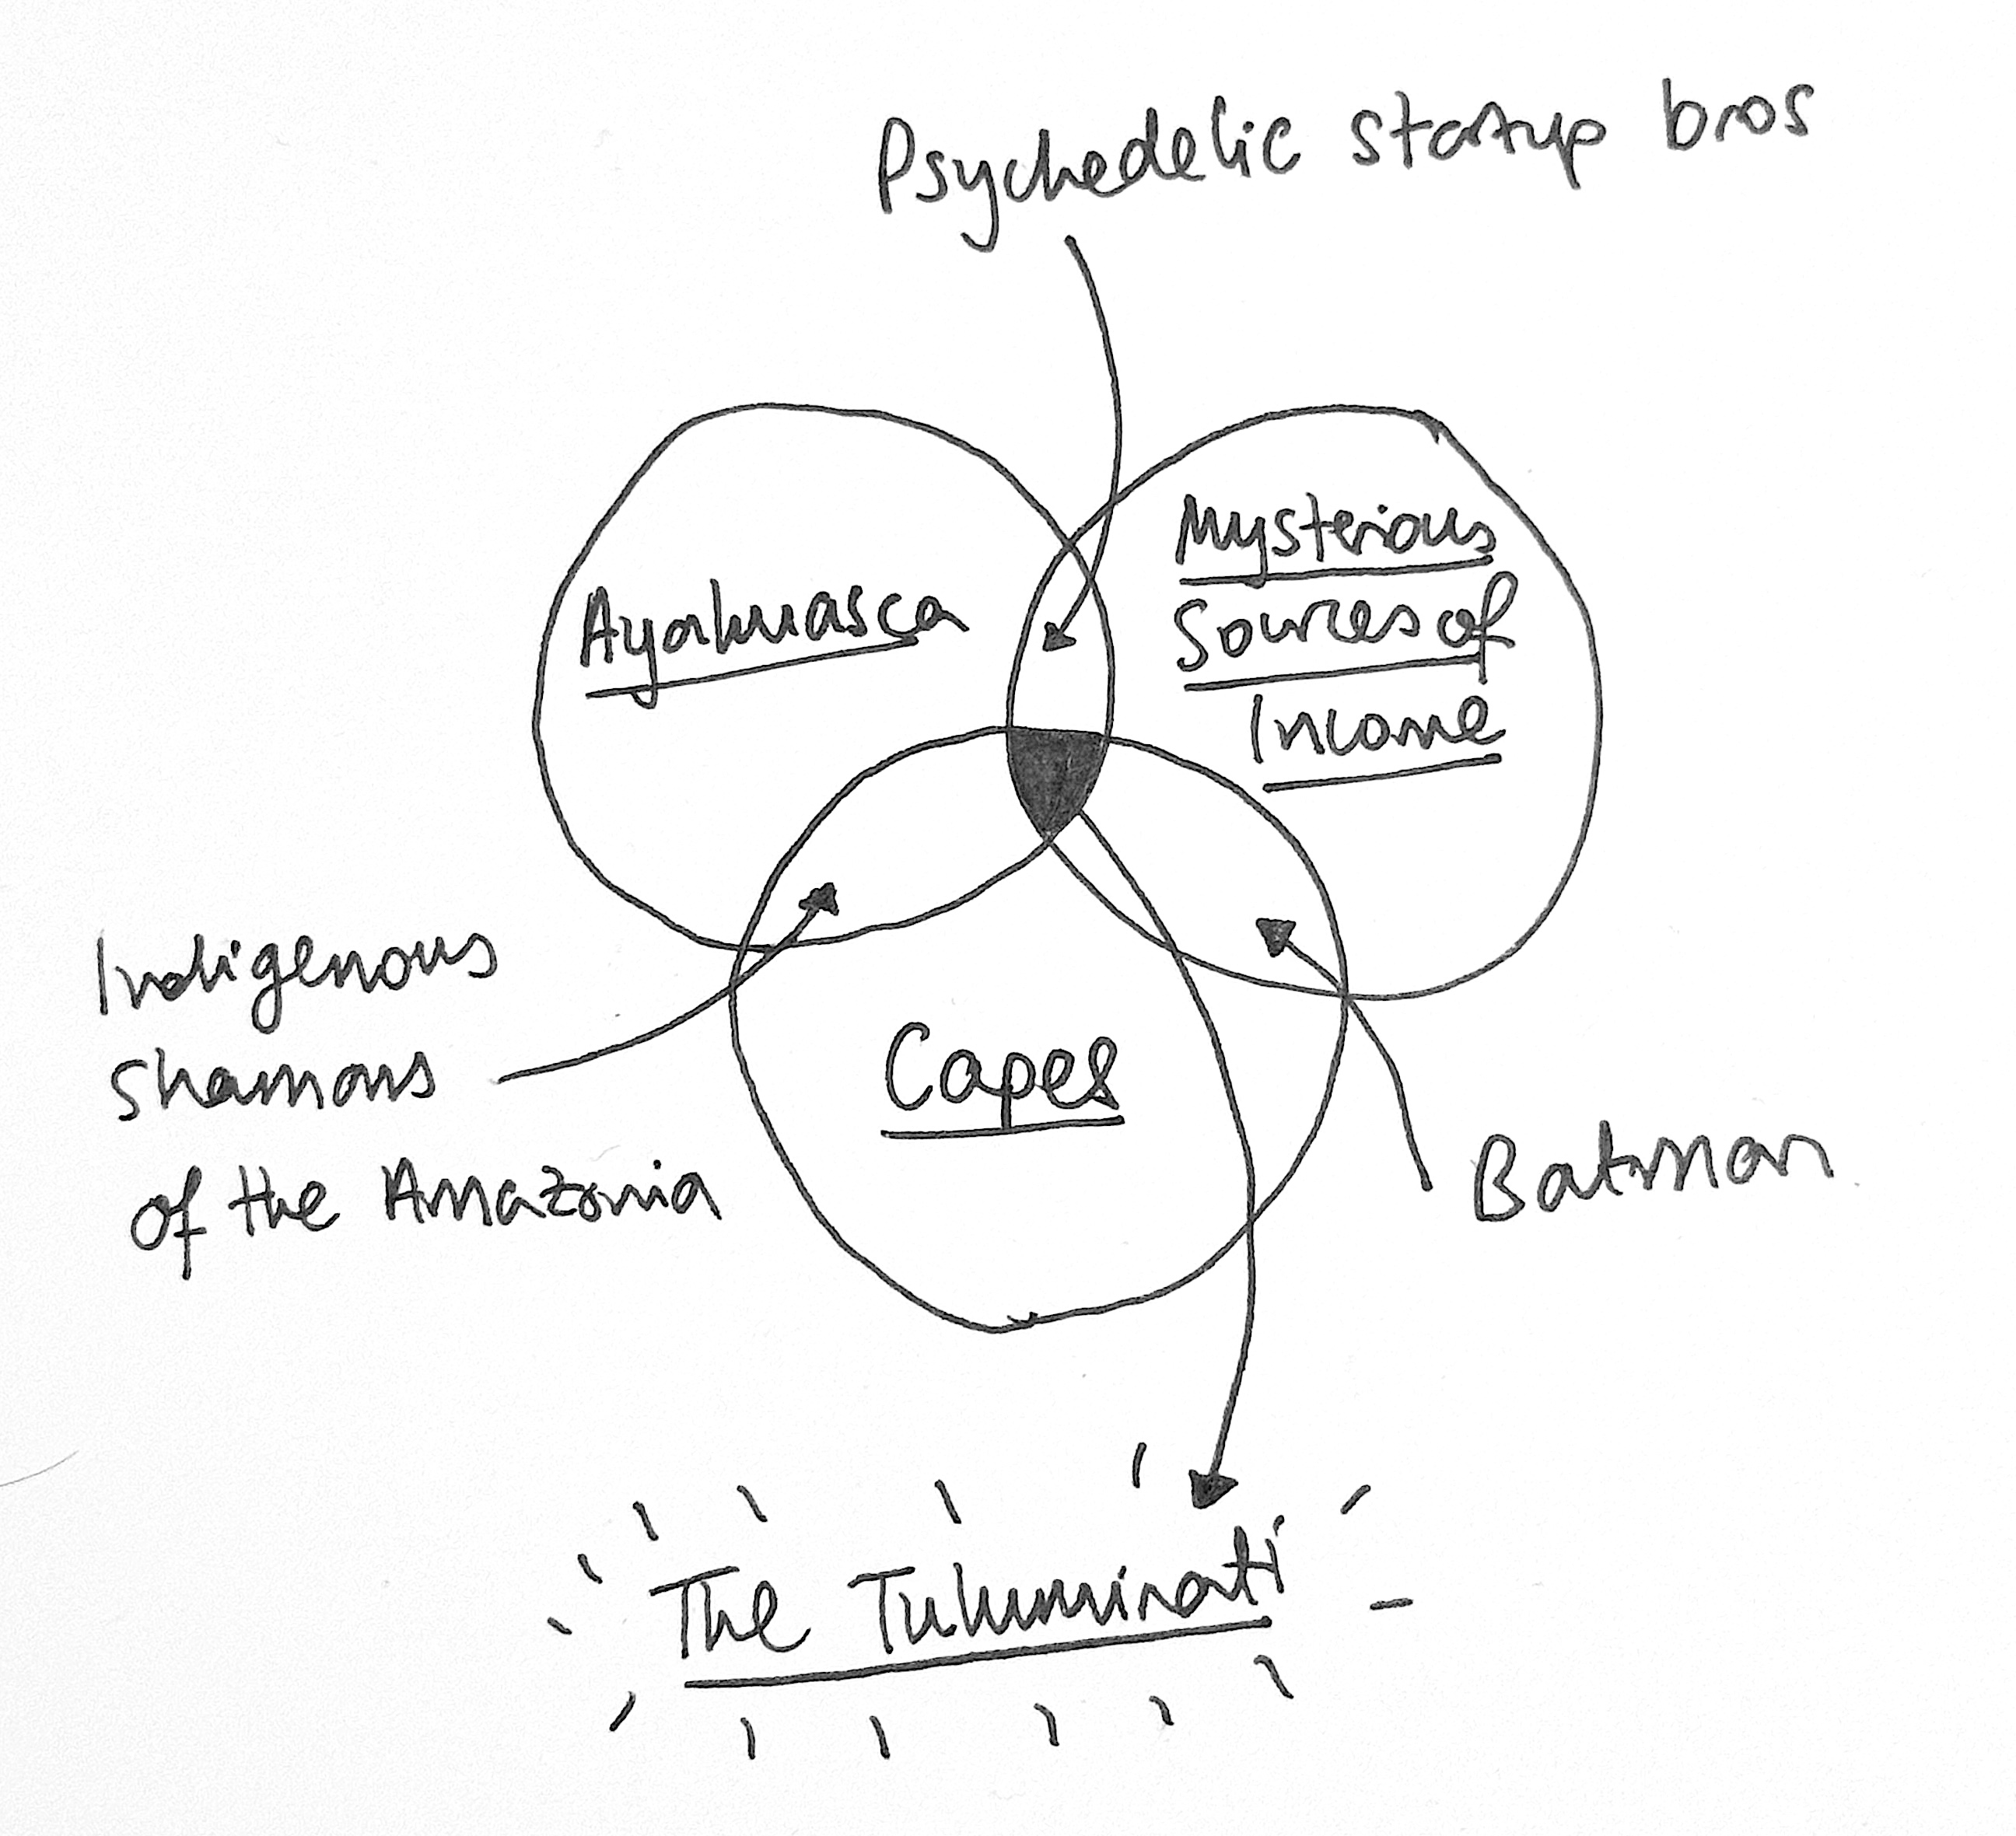 Psychedelic startup bros
Ayahuasca
Mysterious
Sources of
Income
Indigenous
shamans
of the Amazonia
Capes
Batman
The Tuluminati